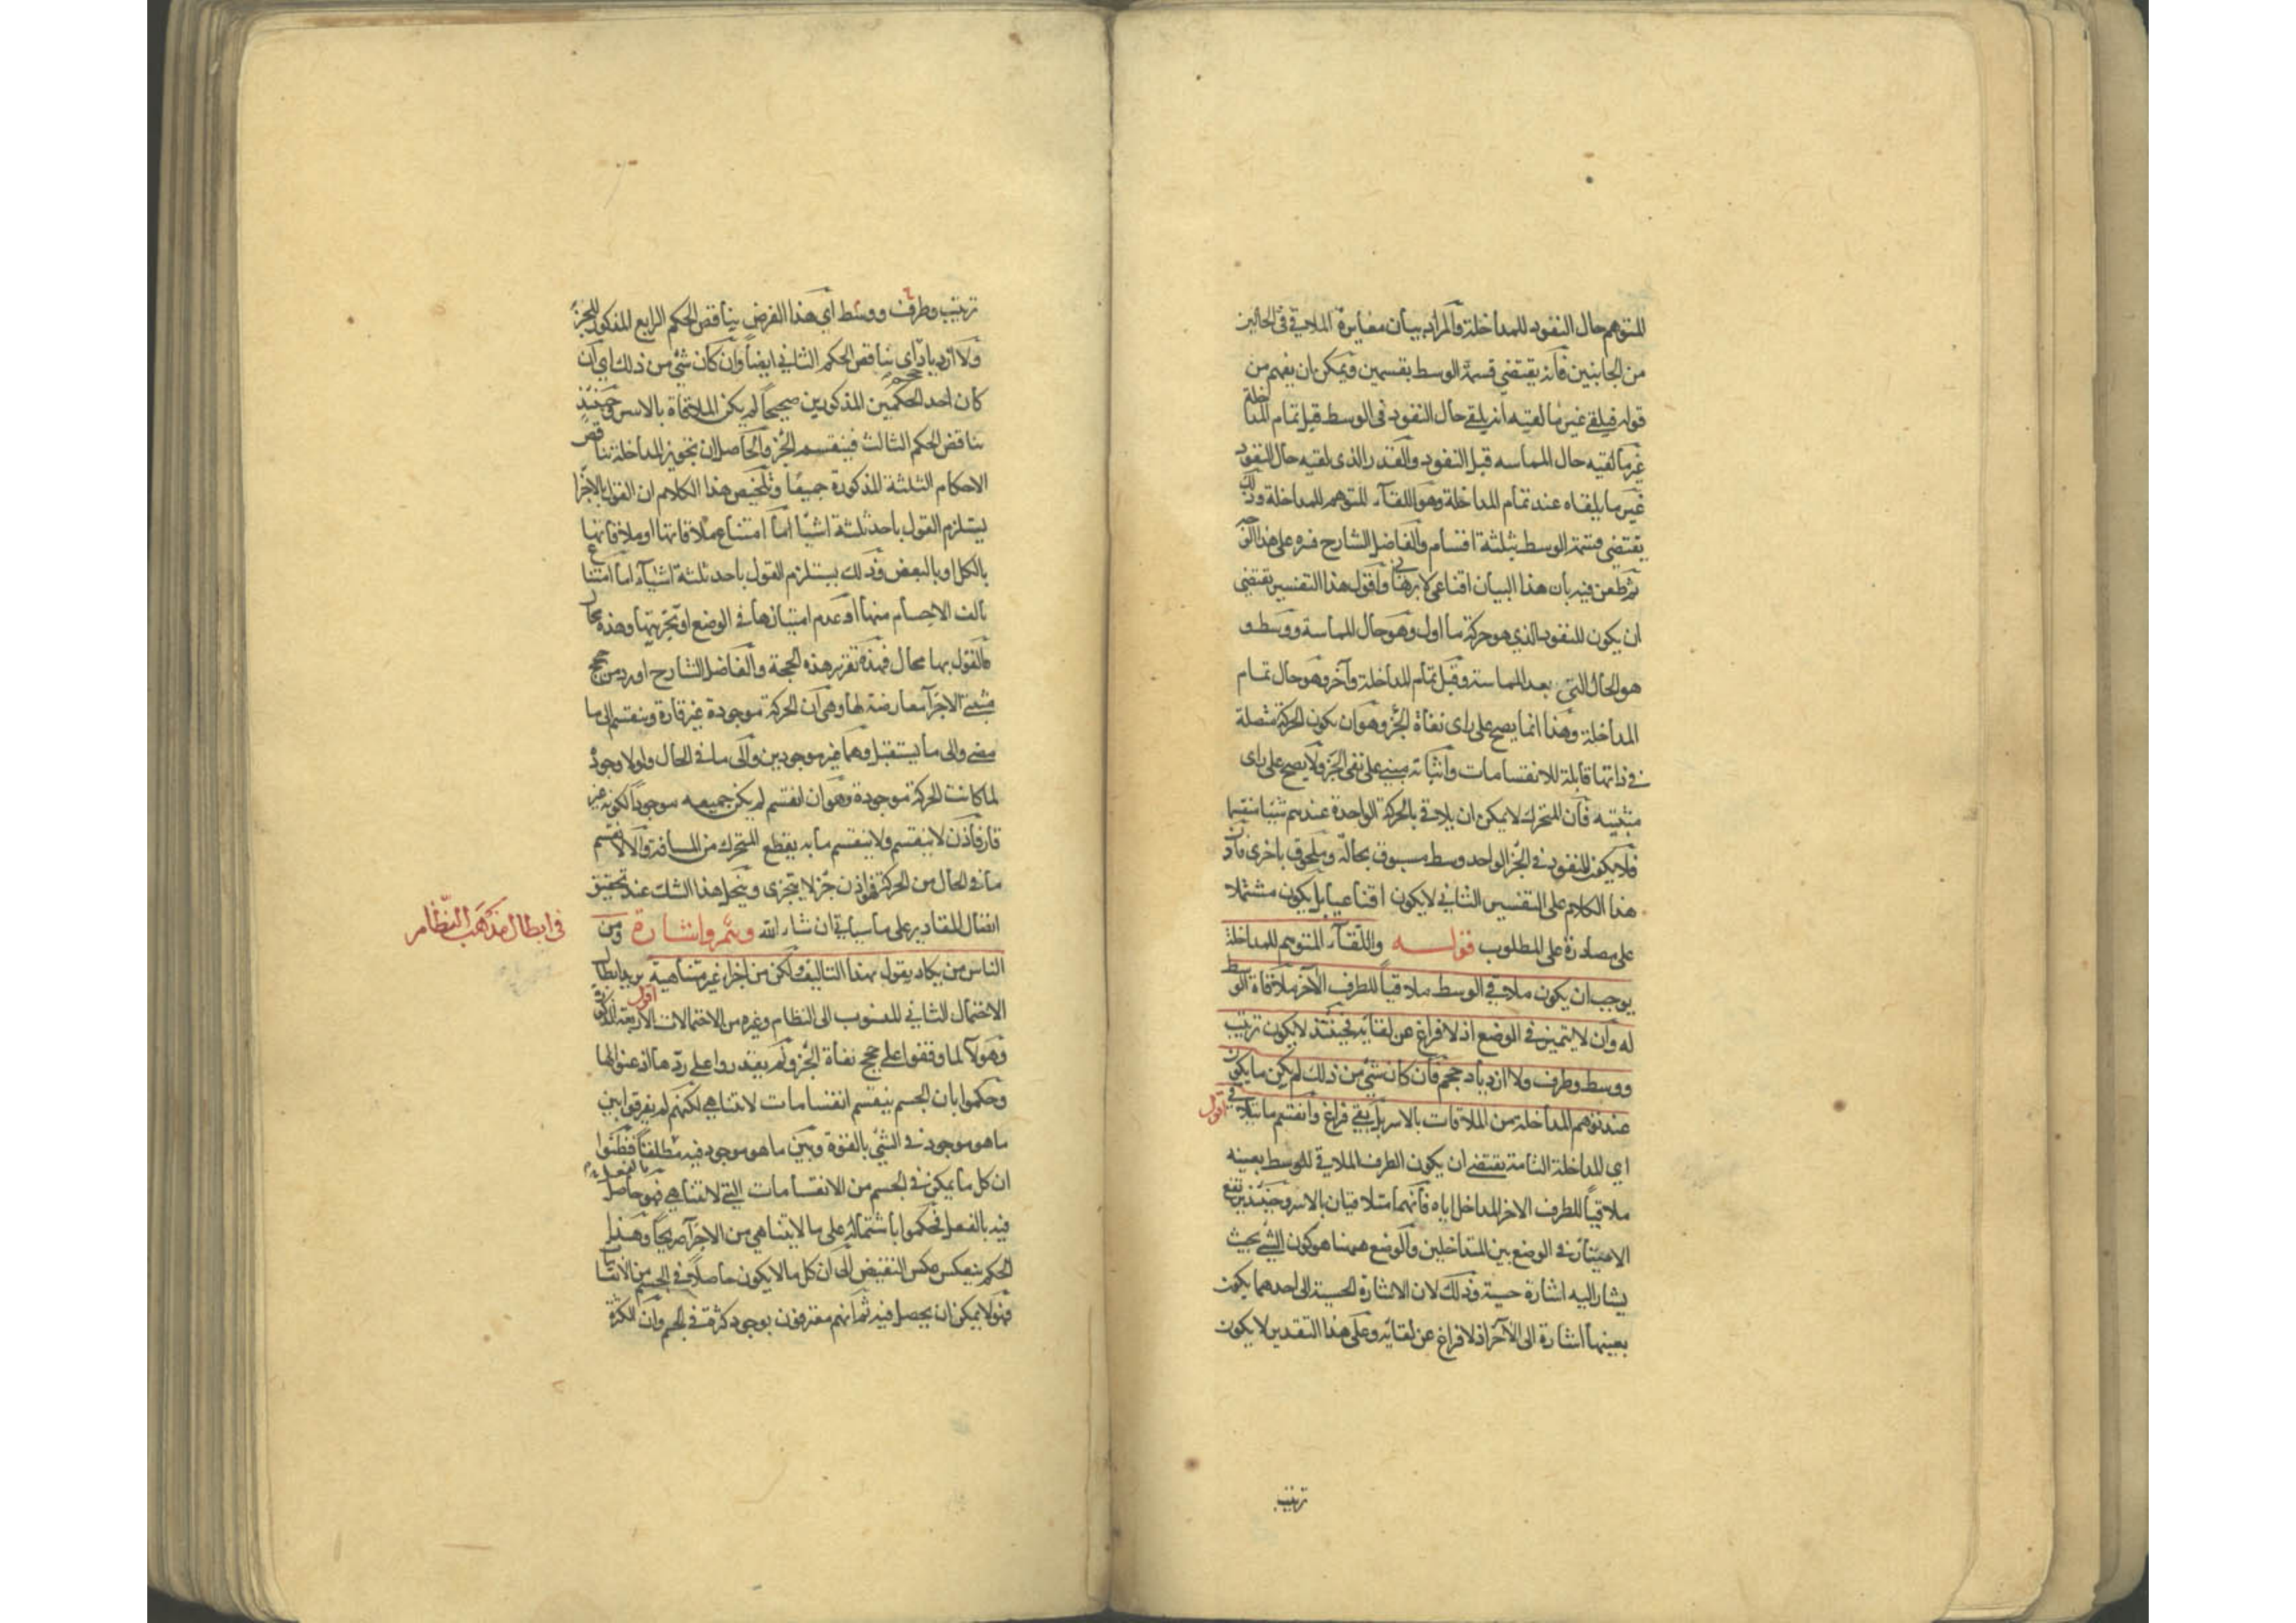 للمتوهم حال النفوذ للمداخلة والمراد بيان مغايرة الملاقي في الحالين
من الجانبين فانه يقتضي قسمة الوسط بقسمين ويمكن ان يفهم من
قوله فيلقى غير ما لقيه انه يلقى حال النفوذ في الوسط قبل تمام المداخلة
غير ما لقيه حال المماسه قبل النفوذ والقدر الذي لقيه حال النفوذ
غير ما يلقاه عند تمام المداخلة وهو اللقآء المتوهم للمداخلة وذلك
يقتضي قسمة الوسط بثلثة اقسام والفاضل الشارح فسره على هذا الوجه
ثم طعن فيه بان هذا البيان اقناعي لا برهاني واقول هذا التفسير يقتضي
ان يكون للنفوذ الذي هو حركة ما اول وهو حال المماسة ووسط و
هو الحال التي بعد المماسة وقبل تمام المداخلة وآخر وهو حال تمام
المداخلة وهذا انما يصح على راى نفاة الجزء وهو ان يكون الحركة متصلة
في ذاتها قابلة للانقسامات واثباته مبني على نفي الجزء ولا يصح على راى
مثبتيه فان المتحرك لا يمكن ان يلاقي بالحركة الواحدة عندهم شيئا منقسما
فلا يكون للنفوذ في الجزء الواحد وسط مسبوق بحالة وملحوق باخرى فاذن
هذا الكلام على التفسير الثاني لا يكون اقناعيا بل يكون مشتملا
على مصادرة على المطلوب قولـــه واللقآء المتوهم للمداخلة
يوجب ان يكون ملاقي الوسط ملاقياً للطرف الآخر ملاقاة الوسط
له وان لا يتميز في الوضع اذ لا فراغ عن لقائه فحينئذ لا يكون ترتيب
ووسط وطرف ولا ازدياد حجم فان كان شئ من ذلك لم يكن ما يكون
عند توهم المداخلة من الملاقات بالاسر بل بقي فراغ وانقسم ما يتلاقى اقول
اي المداخلة التامة يقتضي ان يكون الطرف الملاقي للوسط بعينه
ملاقياً للطرف الاخر المداخل اياه فانهما متلاقيان بالاسر وحينئذ يرتفع
الامتياز في الوضع بين المتداخلين والوضع ههنا هو كون الشئ بحيث
يشار اليه اشارة حسية وذلك لان الاشارة الحسية الى احدهما يكون
بعينها اشارة الى الآخر اذ لا فراغ عن لقائه وعلى هذا التقدير لا يكون
ترتيب
ترتيب وطرف ووسط اي هذا الفرض يناقض الحكم الرابع المذكور للجزء
ولا ازدياد حجم اي يناقض الحكم الثاني ايضاً وان كان شئ من ذلك اي ان
كان احد الحكمين المذكورين صحيحاً لم يكن الملاقاة بالاسر وحينئذ
يناقض الحكم الثالث فينقسم الجزء والحاصل ان تجويز المداخلة يناقض
الاحكام الثلثة المذكورة جميعًا وتلخيص هذا الكلام ان القول بالاجزاء
يستلزم القول باحد ثلثة اشيآء اما امتناع ملاقاتها او ملاقاتها
بالكل او بالبعض وذلك يستلزم القول باحد ثلثة اشيآء اما امتناع
تالف الاجسام منها او عدم امتيازها في الوضع او تجزيتها وهذه محال
فالقول بها محال فهذه تقرير هذه الحجة والفاضل الشارح اورد من حجج
مثبتي الاجزآء معارضة لها وهي ان الحركة موجودة غير قارة وينقسم الى ما
مضى والى ما يستقبل وهما غير موجودين والى ما في الحال ولولا وجوده
لما كانت الحركة موجودة وهو ان انقسم لم يكن جميعه موجوداً لكونه غير
قار فاذن لا ينقسم ولا ينقسم ما به يقطع المتحرك من المسافة والا لانقسم
ما في الحال من الحركة فهو اذن جزء لا يتجزى وينحل هذا الشك عند تحقيق
اتصال المقادير على ما سياتي ان شاء الله وهم واشارة ومن
في ابطال مذهب النظام
الناس من يكاد يقول بهذا التاليف ولكن من اجزاء غير متناهية اقول يريد ابطال
الاحتمال الثاني المنسوب الى النظام وغيره من الاحتمالات الاربعة المذكورة
وهولآء لما وقفوا على حجج نفاة الجزء ولم يقدروا على ردها اذعنوا لها
وحكموا بان الجسم ينقسم انقسامات لا يتناهي لكنهم لم يفرقوا بين
ما هو موجود في الشئ بالقوة وبين ما هو موجود فيه مطلقاً فظنوا
ان كل ما يمكن في الجسم من الانقسامات التي لا يتناهي فهو حاصل
فيه بالفعل فحكموا باشتماله على ما لا يتناهي من الاجزآء صريحاً وهذا
الحكم ينعكس عكس النقيض الى ان كل ما لا يكون حاصلاً في الجسم من الانقسامات
فهو لا يمكن ان يحصل فيه ثم انهم معترفون بوجود كثرة في الجسم وان الكثرة